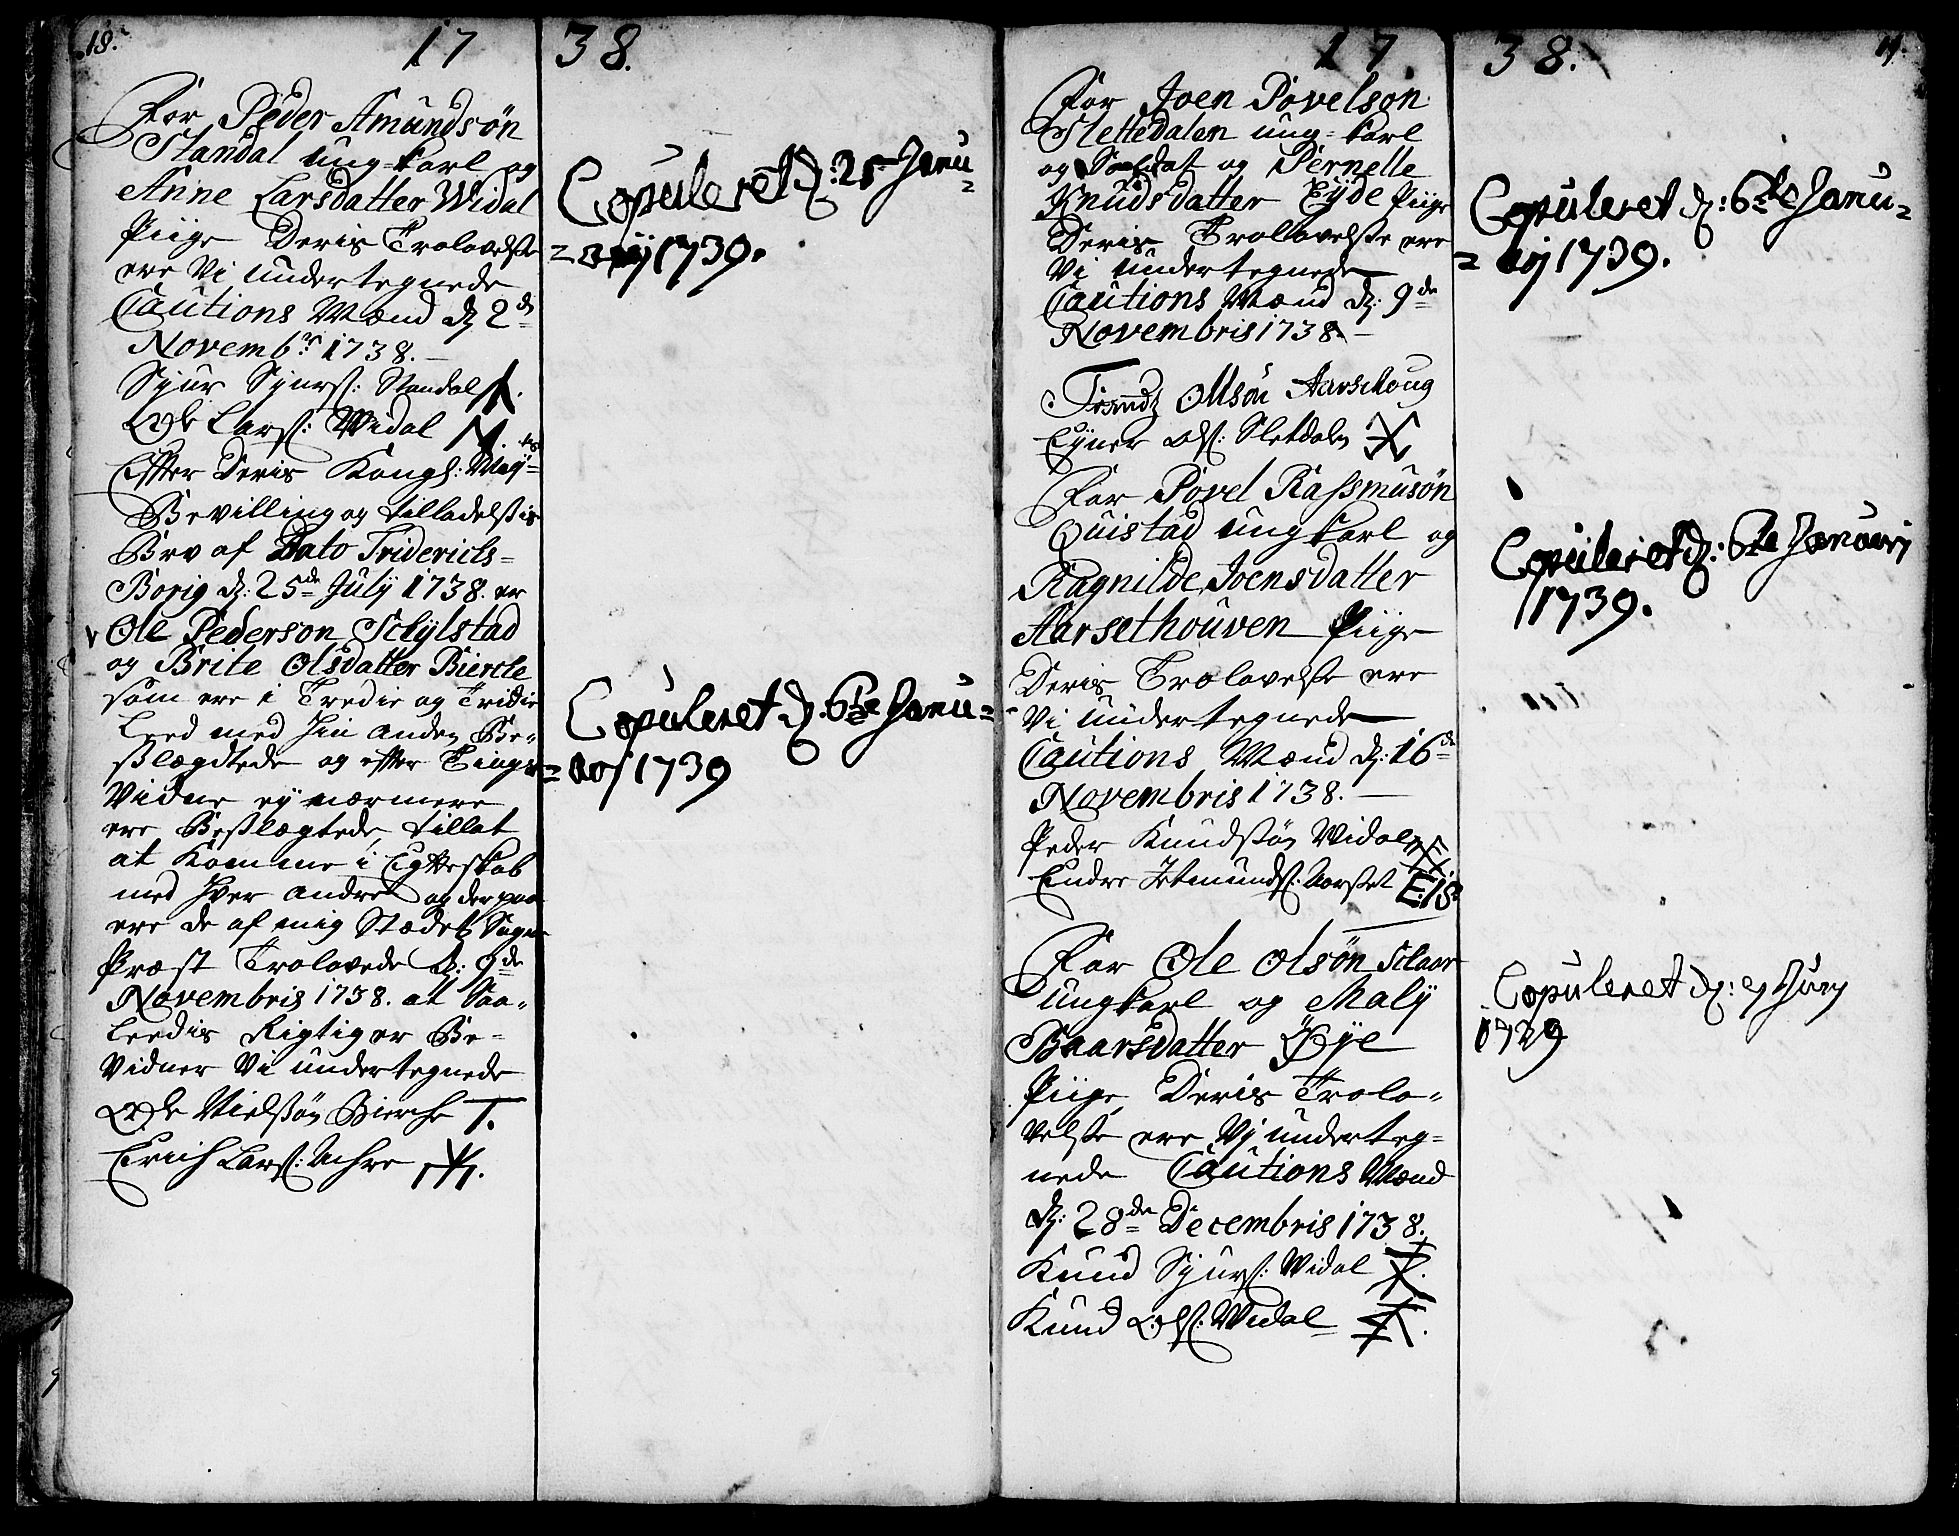 18.
17
38.
For Peder Amundsön
Standal ung-karl og
Anne Larsdatter Widal
Piige Deris Trolovelsse
ere Vi undertegnede
Cautions Mænd d: 2de
Novembrs 1738.
Sjur Sjurs: Standal
Ole Lars: Widal
Efter Deris Kongl: May=ts
Bevilling og tilladelssis
Brev af Dato Fridericks=
Borig d: 25de July 1738. er
Ole Pederson Schylstad
og Brite Olsdatter Biercke
som ere i Tredie og Tridie
Leed med hin anden Be=
sslægdtede og efter Tings
Vidne ey nærmere
ere Besslægtede, tillat
at Komme i Egteskab
med hver andre og der paa
ere de af mig Stædetz Sogne
Præst Trolovede d: 9de
Novembris 1738. at Saa=
leedis Rigtig er Be=
vidner Vi undertegnede
Ole Nielssøn Biercke T.
Erich Lars: Uchre
Copuleret d: 25 Janu=
=arij 1739.
Copuleret d. 6te Janu=
=arij 1739
17.
38.
19.
For Joen Povelson
Slettedalen ung-karl
og Soldat og Pernelle
Knudsdatter Eyde Piige
Deris Trollovelsse ere
Vi undertegnede
Cautions Mænd d: 9de
Novembris 1738.
Ollsön Aarskoug
Eyner Ols: Sletdalen
For Povel Rassmusön
Quistad ungkarl og
Ragnilde Joensdatter
Aarsethouven Piige
Deris Trolovelsse ere
Vi undertegnede
Cautions Mænd d: 16de
Novembris 1738.
Peder Knudssøn Widal
Endre Jetmunds: Aarsset E.I.S.
For Ole Olsøn Skaar
ungkarl og Maly
Baarsdatter Øye
Piige, Deris Trolo=
velsse ere Vj underteg=
nede Cautions Mænd
d: 28de Decembris 1738.
Knud Sjurs: Widal
Knud Ols: Widal
Copuleret d: 6te Janu=
=arij 1739.
Copuleret d: 6te Januarij
1739.
Copuleret d:
1739